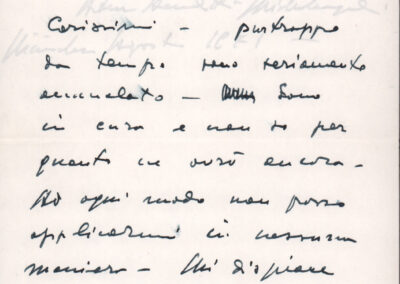 Carissimi - purtroppo
da tempo sono seriamente
ammalato - Sono
in cura e non so per
quanto ne avrò ancora -
Ad ogni modo non posso
applicarmi in nessuna
maniera - Mi dispiace